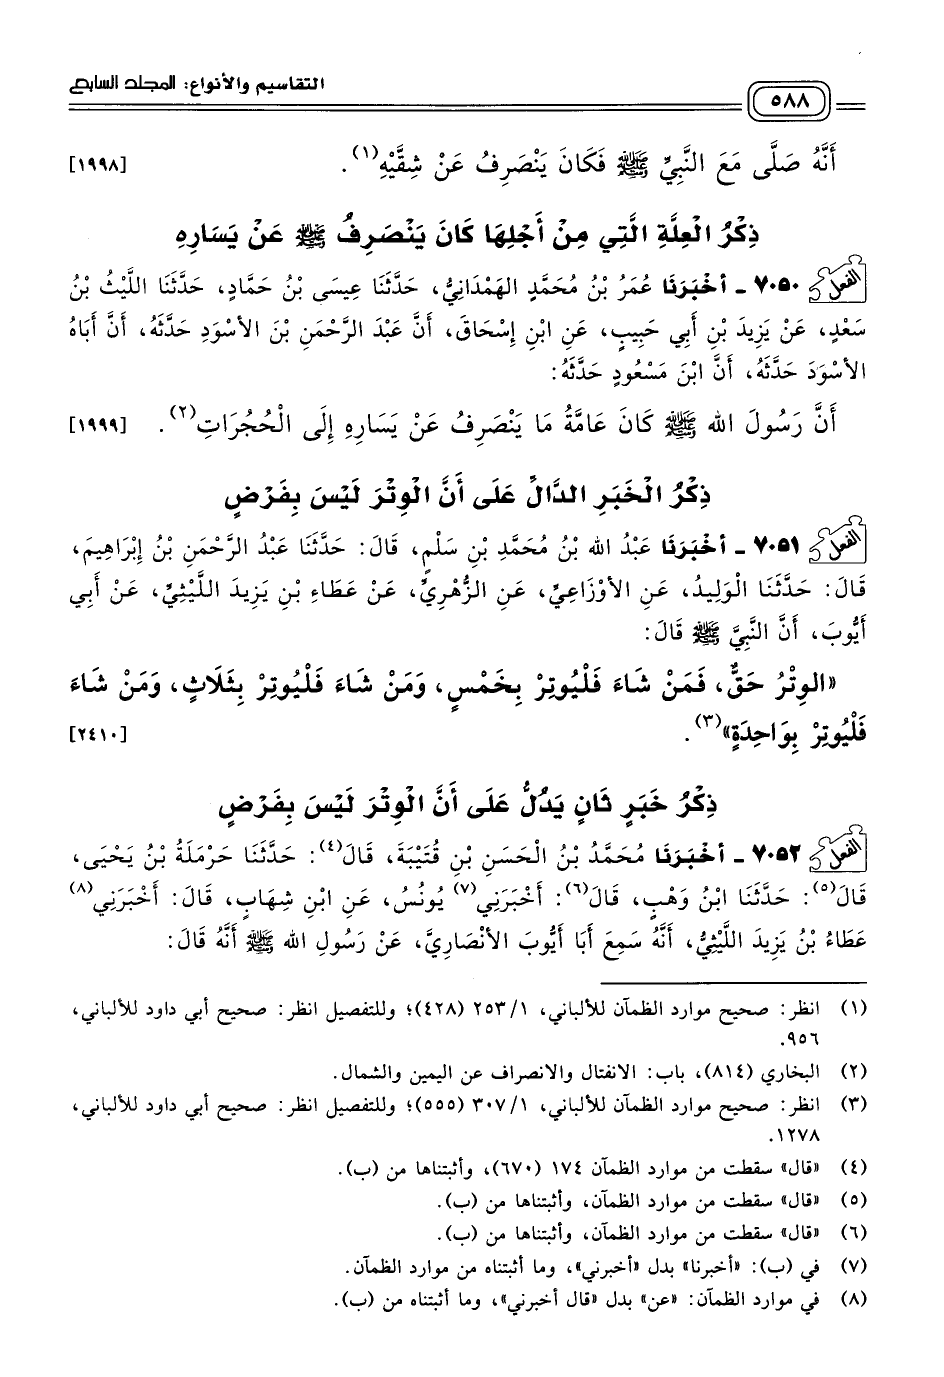 التقاسيم والأنواع: المجلد السابع
٥٨٨
أَنَّهُ صَلَّى مَعَ النَّبِيِّ ﷺ فَكَانَ يَنْصَرِفُ عَنْ شِقَّيْهِ(١). [١٩٩٨]
ذِكْرُ الْعِلَّةِ الَّتِي مِنْ أَجْلِهَا كَانَ يَنْصَرِفُ ﷺ عَنْ يَسَارِهِ
الفعل ٧٠٥٠ ـ أخْبَرَنَا عُمَرُ بْنُ مُحَمَّدٍ الهَمْدَانِيُّ، حَدَّثَنَا عِيسَى بْنُ حَمَّادٍ، حَدَّثَنَا اللَّيْثُ بْنُ
سَعْدٍ، عَنْ يَزِيدَ بْنِ أَبِي حَبِيبٍ، عَنِ ابْنِ إِسْحَاقَ، أَنَّ عَبْدَ الرَّحْمَنِ بْنَ الأَسْوَدِ حَدَّثَهُ، أَنَّ أَبَاهُ
الأَسْوَدَ حَدَّثَهُ، أَنَّ ابْنَ مَسْعُودٍ حَدَّثَهُ:
أَنَّ رَسُولَ اللهِ ﷺ كَانَ عَامَّةُ مَا يَنْصَرِفُ عَنْ يَسَارِهِ إِلَى الْحُجُرَاتِ(٢). [١٩٩٩]
ذِكْرُ الْخَبَرِ الدَّالِّ عَلَى أَنَّ الْوِتْرَ لَيْسَ بِفَرْضٍ
الفعل ٧٠٥١ ـ أخْبَرَنَا عَبْدُ اللهِ بْنُ مُحَمَّدِ بْنِ سَلْمٍ، قَالَ: حَدَّثَنَا عَبْدُ الرَّحْمَنِ بْنُ إِبْرَاهِيمَ،
قَالَ: حَدَّثَنَا الْوَلِيدُ، عَنِ الأَوْزَاعِيِّ، عَنِ الزُّهْرِيِّ، عَنْ عَطَاءِ بْنِ يَزِيدَ اللَّيْثِيِّ، عَنْ أَبِي
أَيُّوبَ، أَنَّ النَّبِيَّ ﷺ قَالَ:
«الوِتْرُ حَقٌّ، فَمَنْ شَاءَ فَلْيُوتِرْ بِخَمْسٍ، وَمَنْ شَاءَ فَلْيُوتِرْ بِثَلَاثٍ، وَمَنْ شَاءَ
فَلْيُوتِرْ بِوَاحِدَةٍ»(٣). [٢٤١٠]
ذِكْرُ خَبَرٍ ثَانٍ يَدُلُّ عَلَى أَنَّ الْوِتْرَ لَيْسَ بِفَرْضٍ
الفعل ٧٠٥٢ ـ أخْبَرَنَا مُحَمَّدُ بْنُ الْحَسَنِ بْنِ قُتَيْبَةَ، قَالَ(٤): حَدَّثَنَا حَرْمَلَةُ بْنُ يَحْيَى،
قَالَ(٥): حَدَّثَنَا ابْنُ وَهْبٍ، قَالَ(٦): أَخْبَرَنِي(٧) يُونُسُ، عَنِ ابْنِ شِهَابٍ، قَالَ: أَخْبَرَنِي(٨)
عَطَاءُ بْنُ يَزِيدَ اللَّيْثِيُّ، أَنَّهُ سَمِعَ أَبَا أَيُّوبَ الأَنْصَارِيَّ، عَنْ رَسُولِ اللهِ ﷺ أَنَّهُ قَالَ:
(١) انظر: صحيح موارد الظمآن للألباني، ١/ ٢٥٣ (٤٢٨)؛ وللتفصيل انظر: صحيح أبي داود للألباني،
٩٥٦.
(٢) البخاري (٨١٤)، باب: الانفتال والانصراف عن اليمين والشمال.
(٣) انظر: صحيح موارد الظمآن للألباني، ١/ ٣٠٧ (٥٥٥)؛ وللتفصيل انظر: صحيح أبي داود للألباني،
١٢٧٨.
(٤) «قال» سقطت من موارد الظمآن ١٧٤ (٦٧٠)، وأثبتناها من (ب).
(٥) «قال» سقطت من موارد الظمآن، وأثبتناها من (ب).
(٦) «قال» سقطت من موارد الظمآن، وأثبتناها من (ب).
(٧) في (ب): «أخبرنا» بدل «أخبرني»، وما أثبتناه من موارد الظمآن.
(٨) في موارد الظمآن: «عن» بدل «قال أخبرني»، وما أثبتناه من (ب).